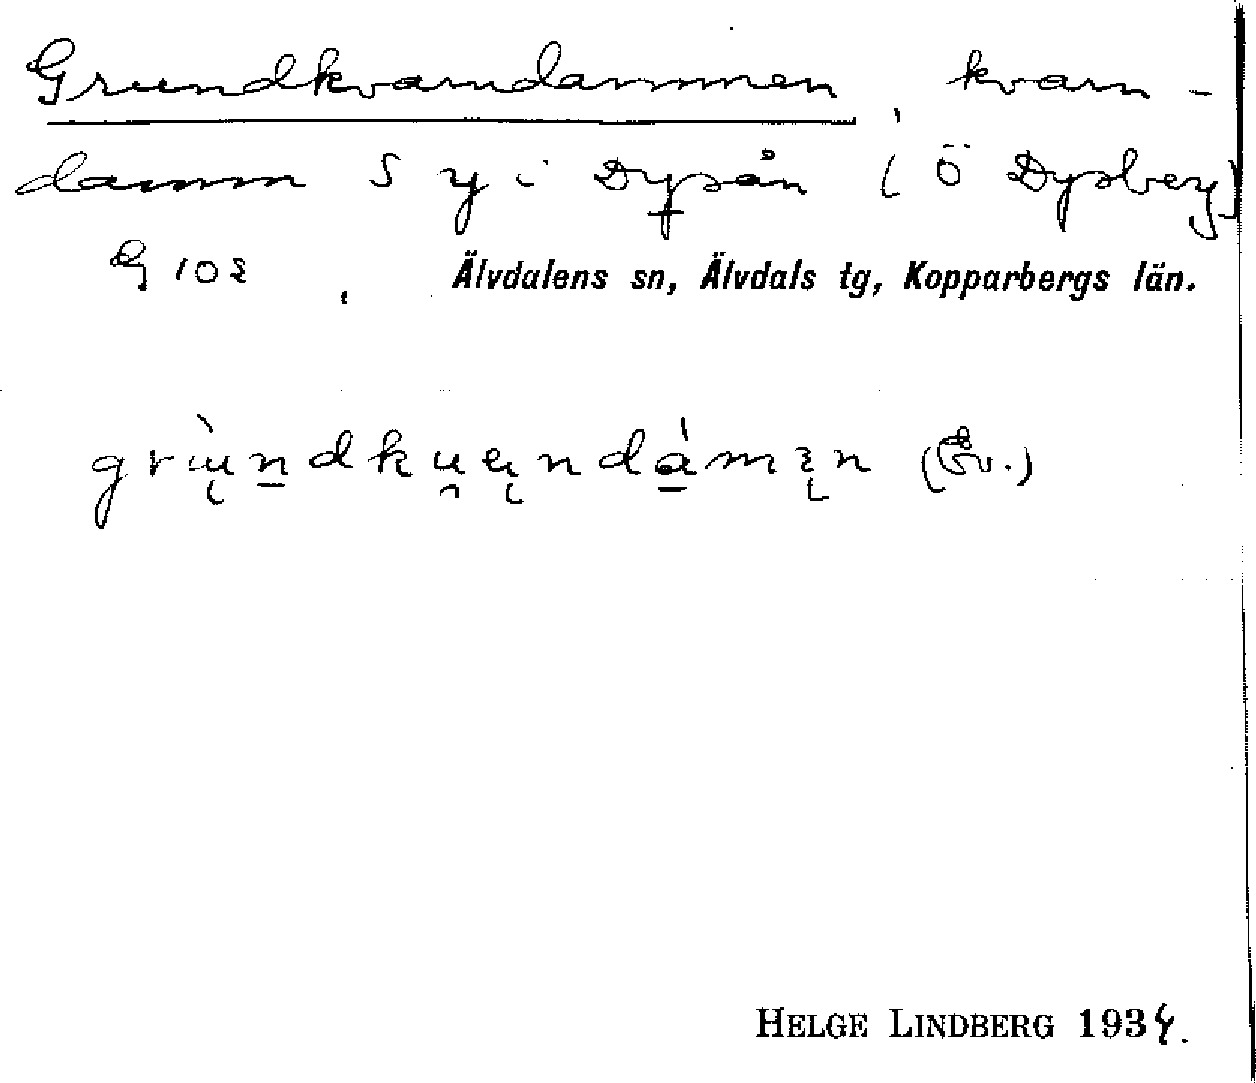 Grundkvarndammen, kvarn-
damm S y i Dysån (Ö Dysberg)
G 102, Älvdalens sn, Älvdals tg, Kopparbergs län.
grùndkuęndámęn (Ev.)
HELGE LINDBERG 1934.